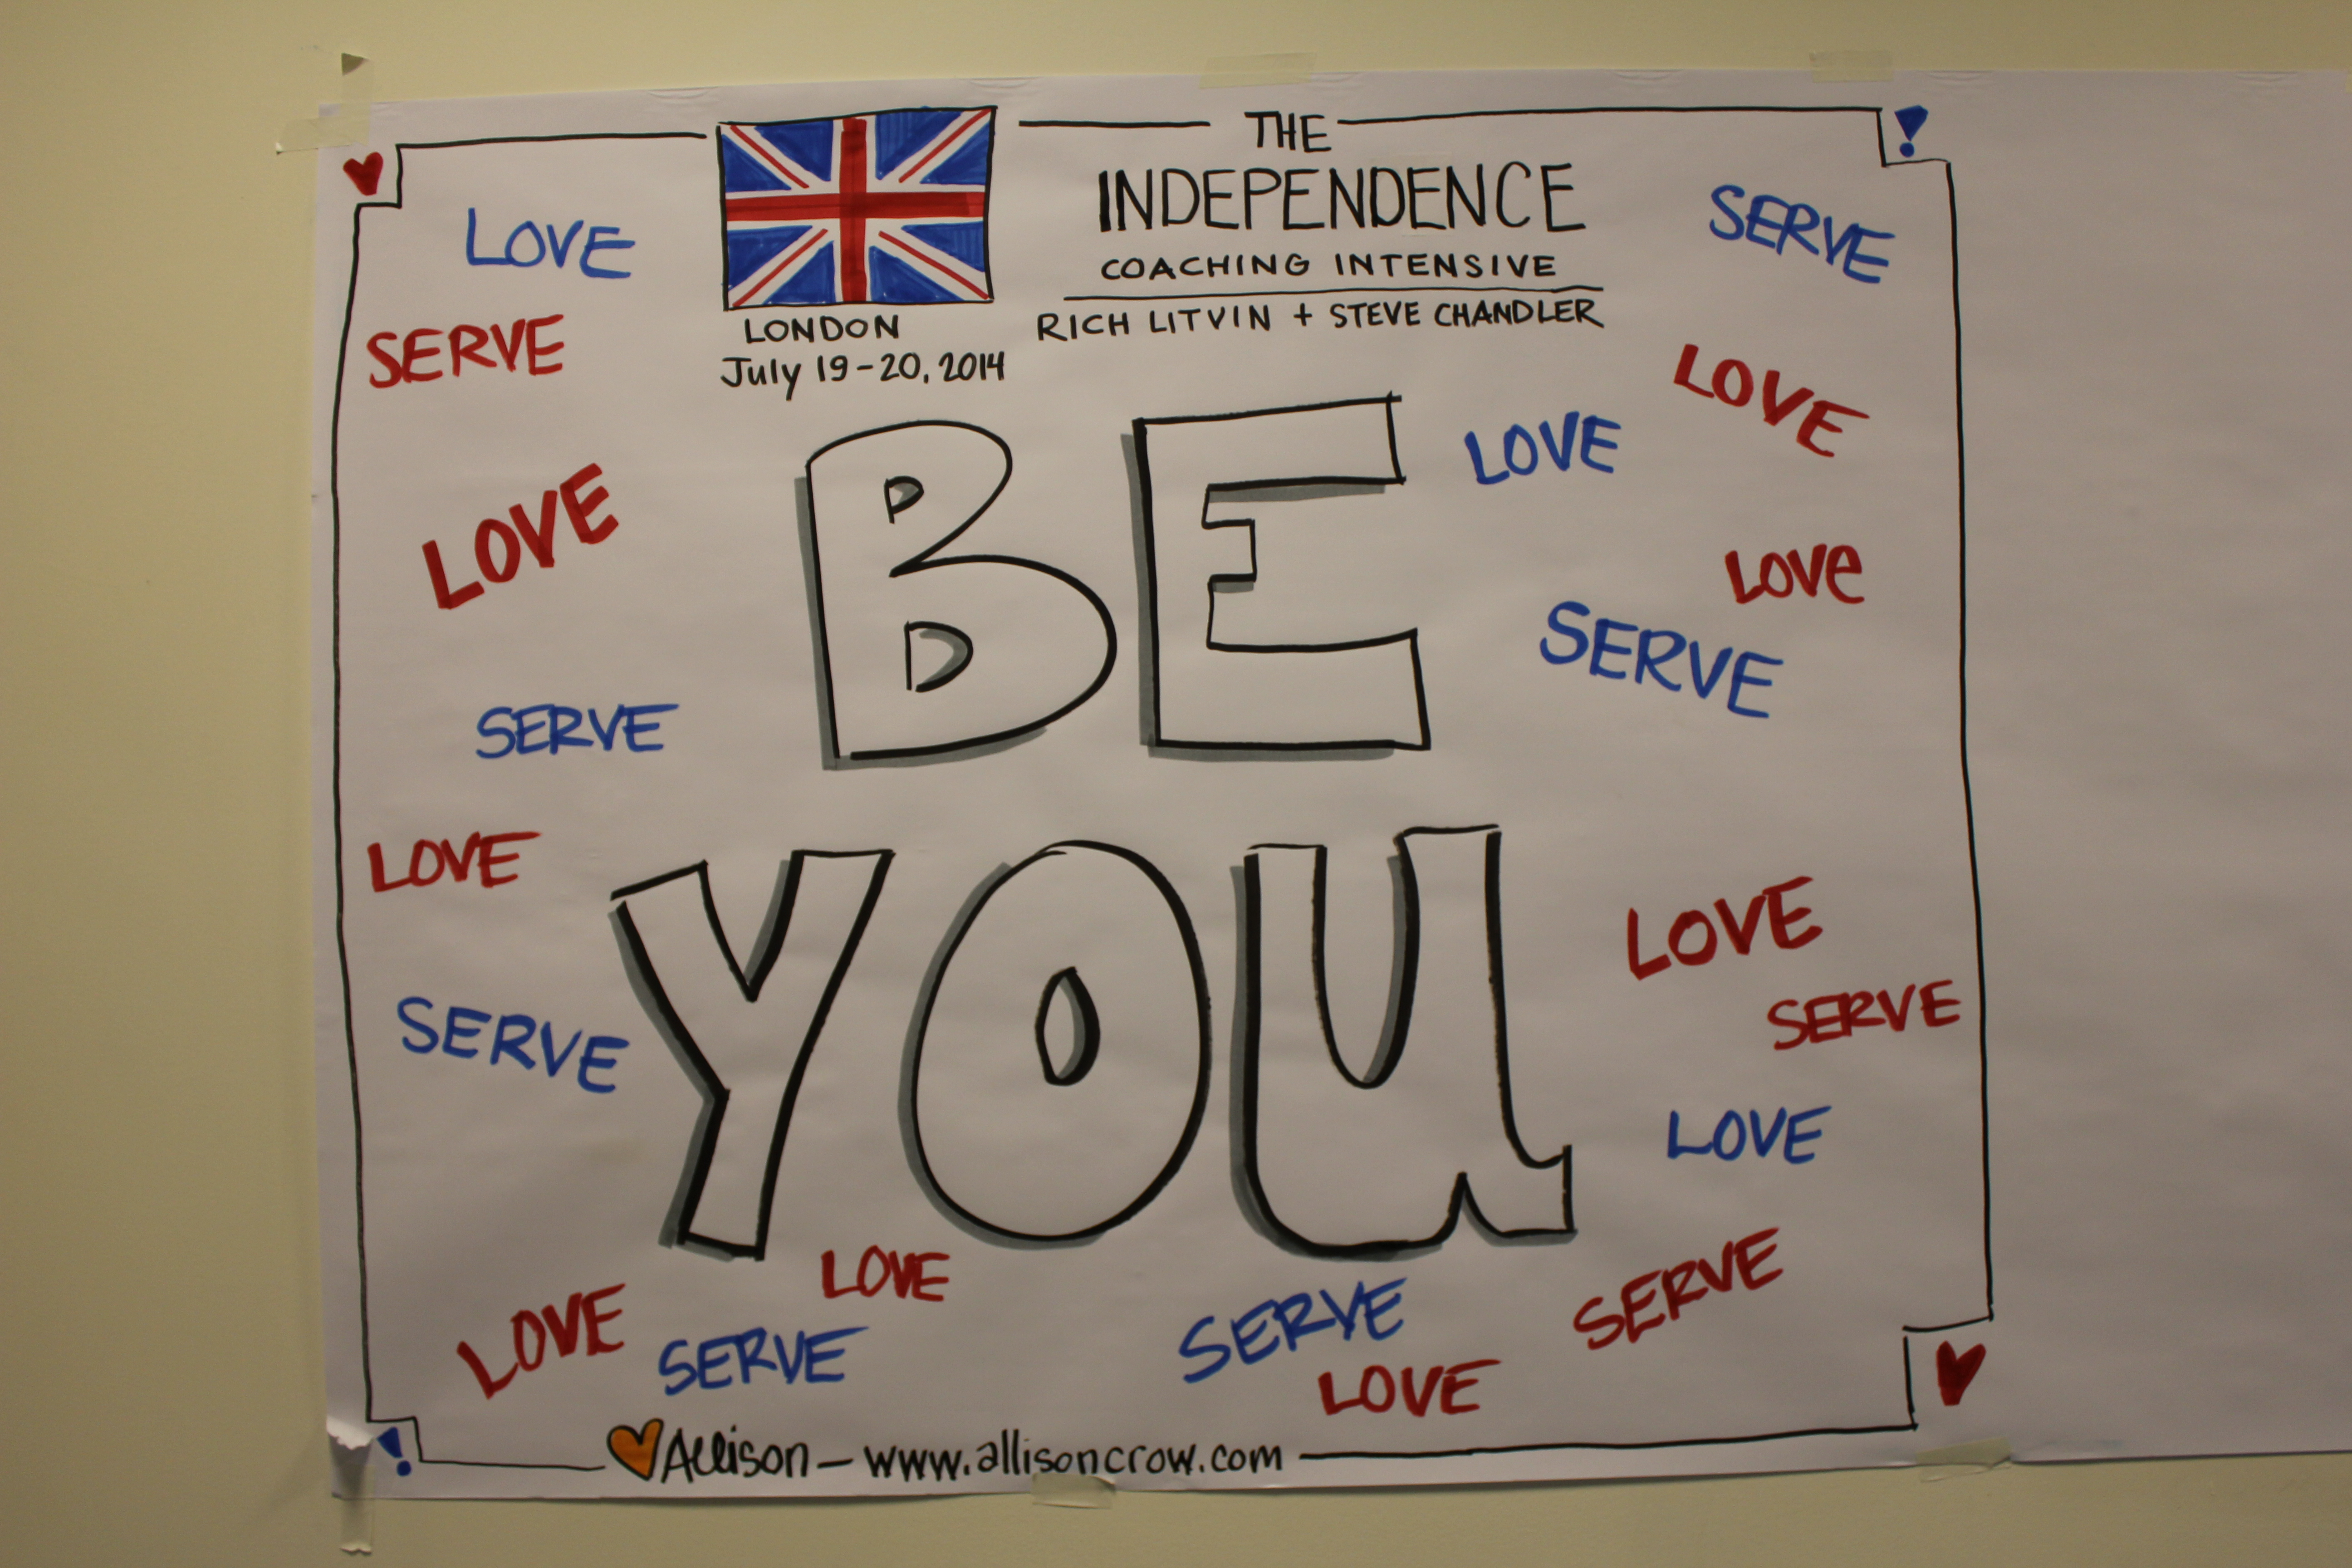 THE
INDEPENDENCE
COACHING INTENSIVE
RICH LITVIN + STEVE CHANDLER
LONDON
July 19-20, 2014
LOVE
SERVE
SERVE
LOVE
LOVE
LOVE
BE
LOVE
SERVE
SERVE
LOVE
YOU
LOVE
SERVE
SERVE
LOVE
LOVE
SERVE
LOVE
SERVE
SERVE
LOVE
Allison - www.allisoncrow.com